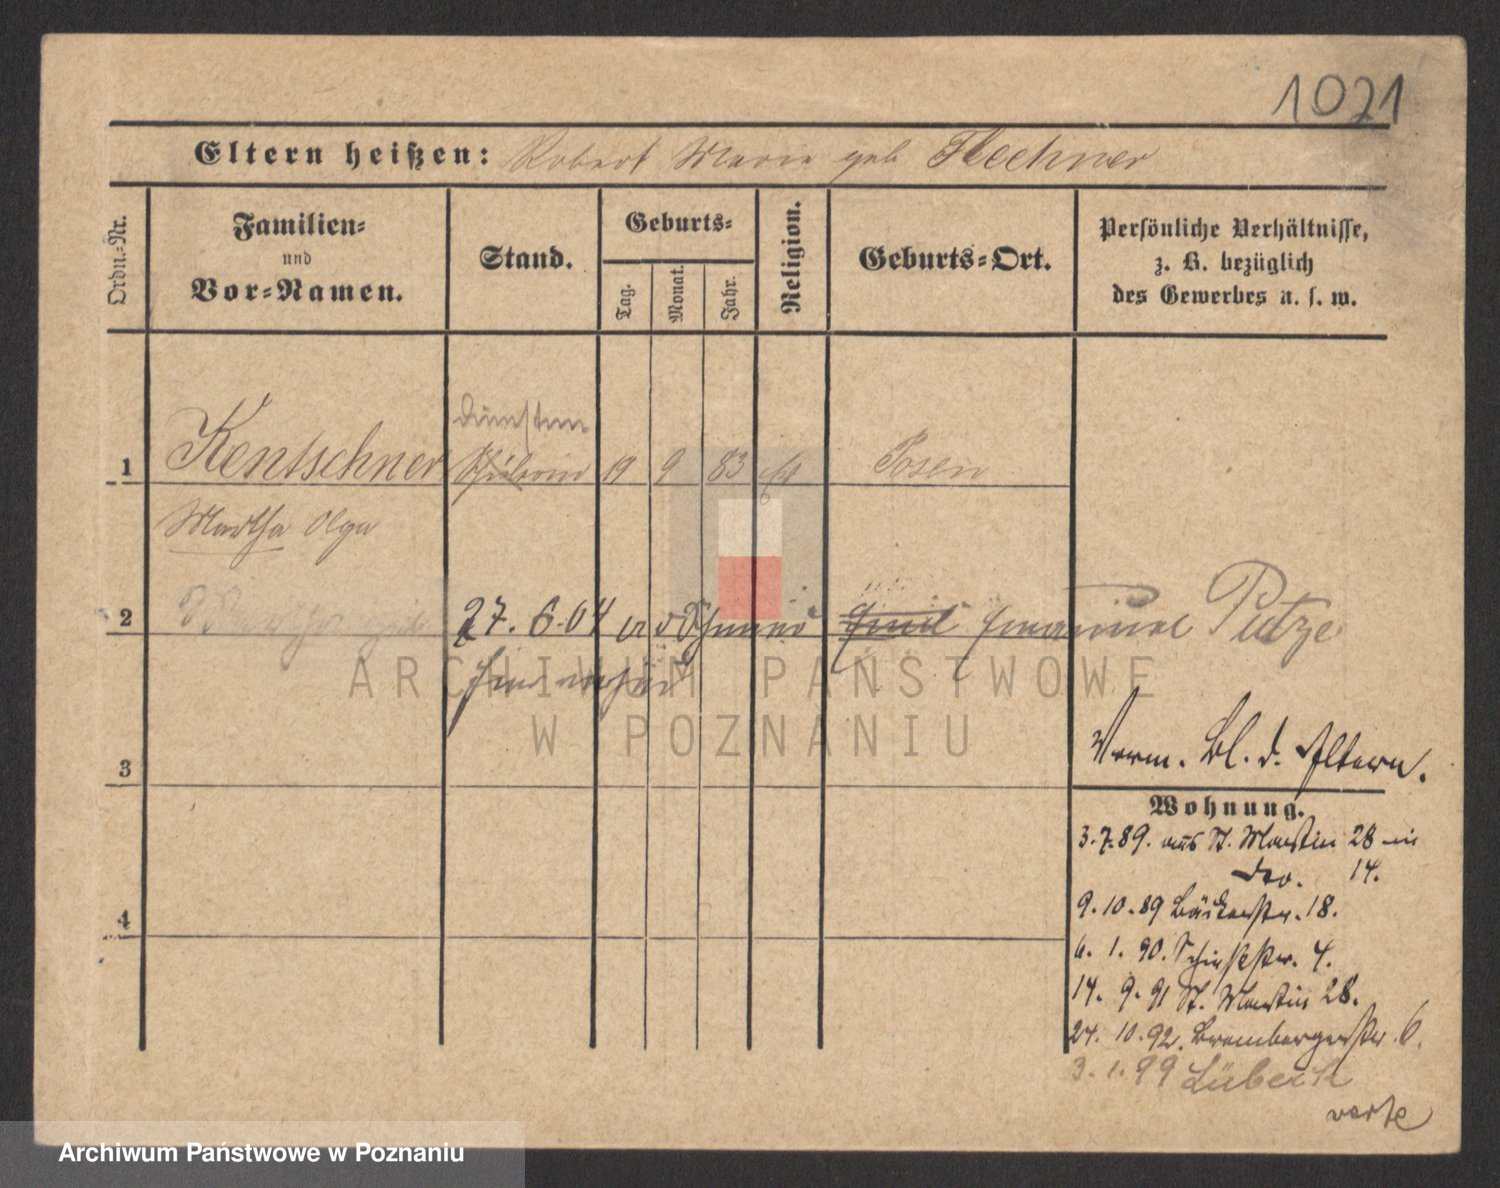 1021
Eltern heißen: Robert Marie geb Flechner
Ordn.-Nr.
Familien-
und
Vor-Namen.
Stand.
Geburts-
Tag.
Monat.
Jahr.
Religion.
Geburts-Ort.
Persönliche Verhältnisse,
z. B. bezüglich
des Gewerbes u. s. w.
1 Kentschner 19 9 83 Posen
Martha Olga
2 27. 6. 04 Emil Emanuel Putze
ARCHIWUM PAŃSTWOWE
W POZNANIU
Verm. Bl. d. Eltern.
3
Wohnung.
3. 7. 89. aus St. Martin 28 in
dto. 14.
9. 10. 89 Bäckerstr. 18.
4
6. 1. 90. Schießstr. 4.
14. 9. 91 St. Martin 28.
24. 10. 92. Brombergerstr. 6.
3. 1. 99 Lübeck
verte
Archiwum Państwowe w Poznaniu